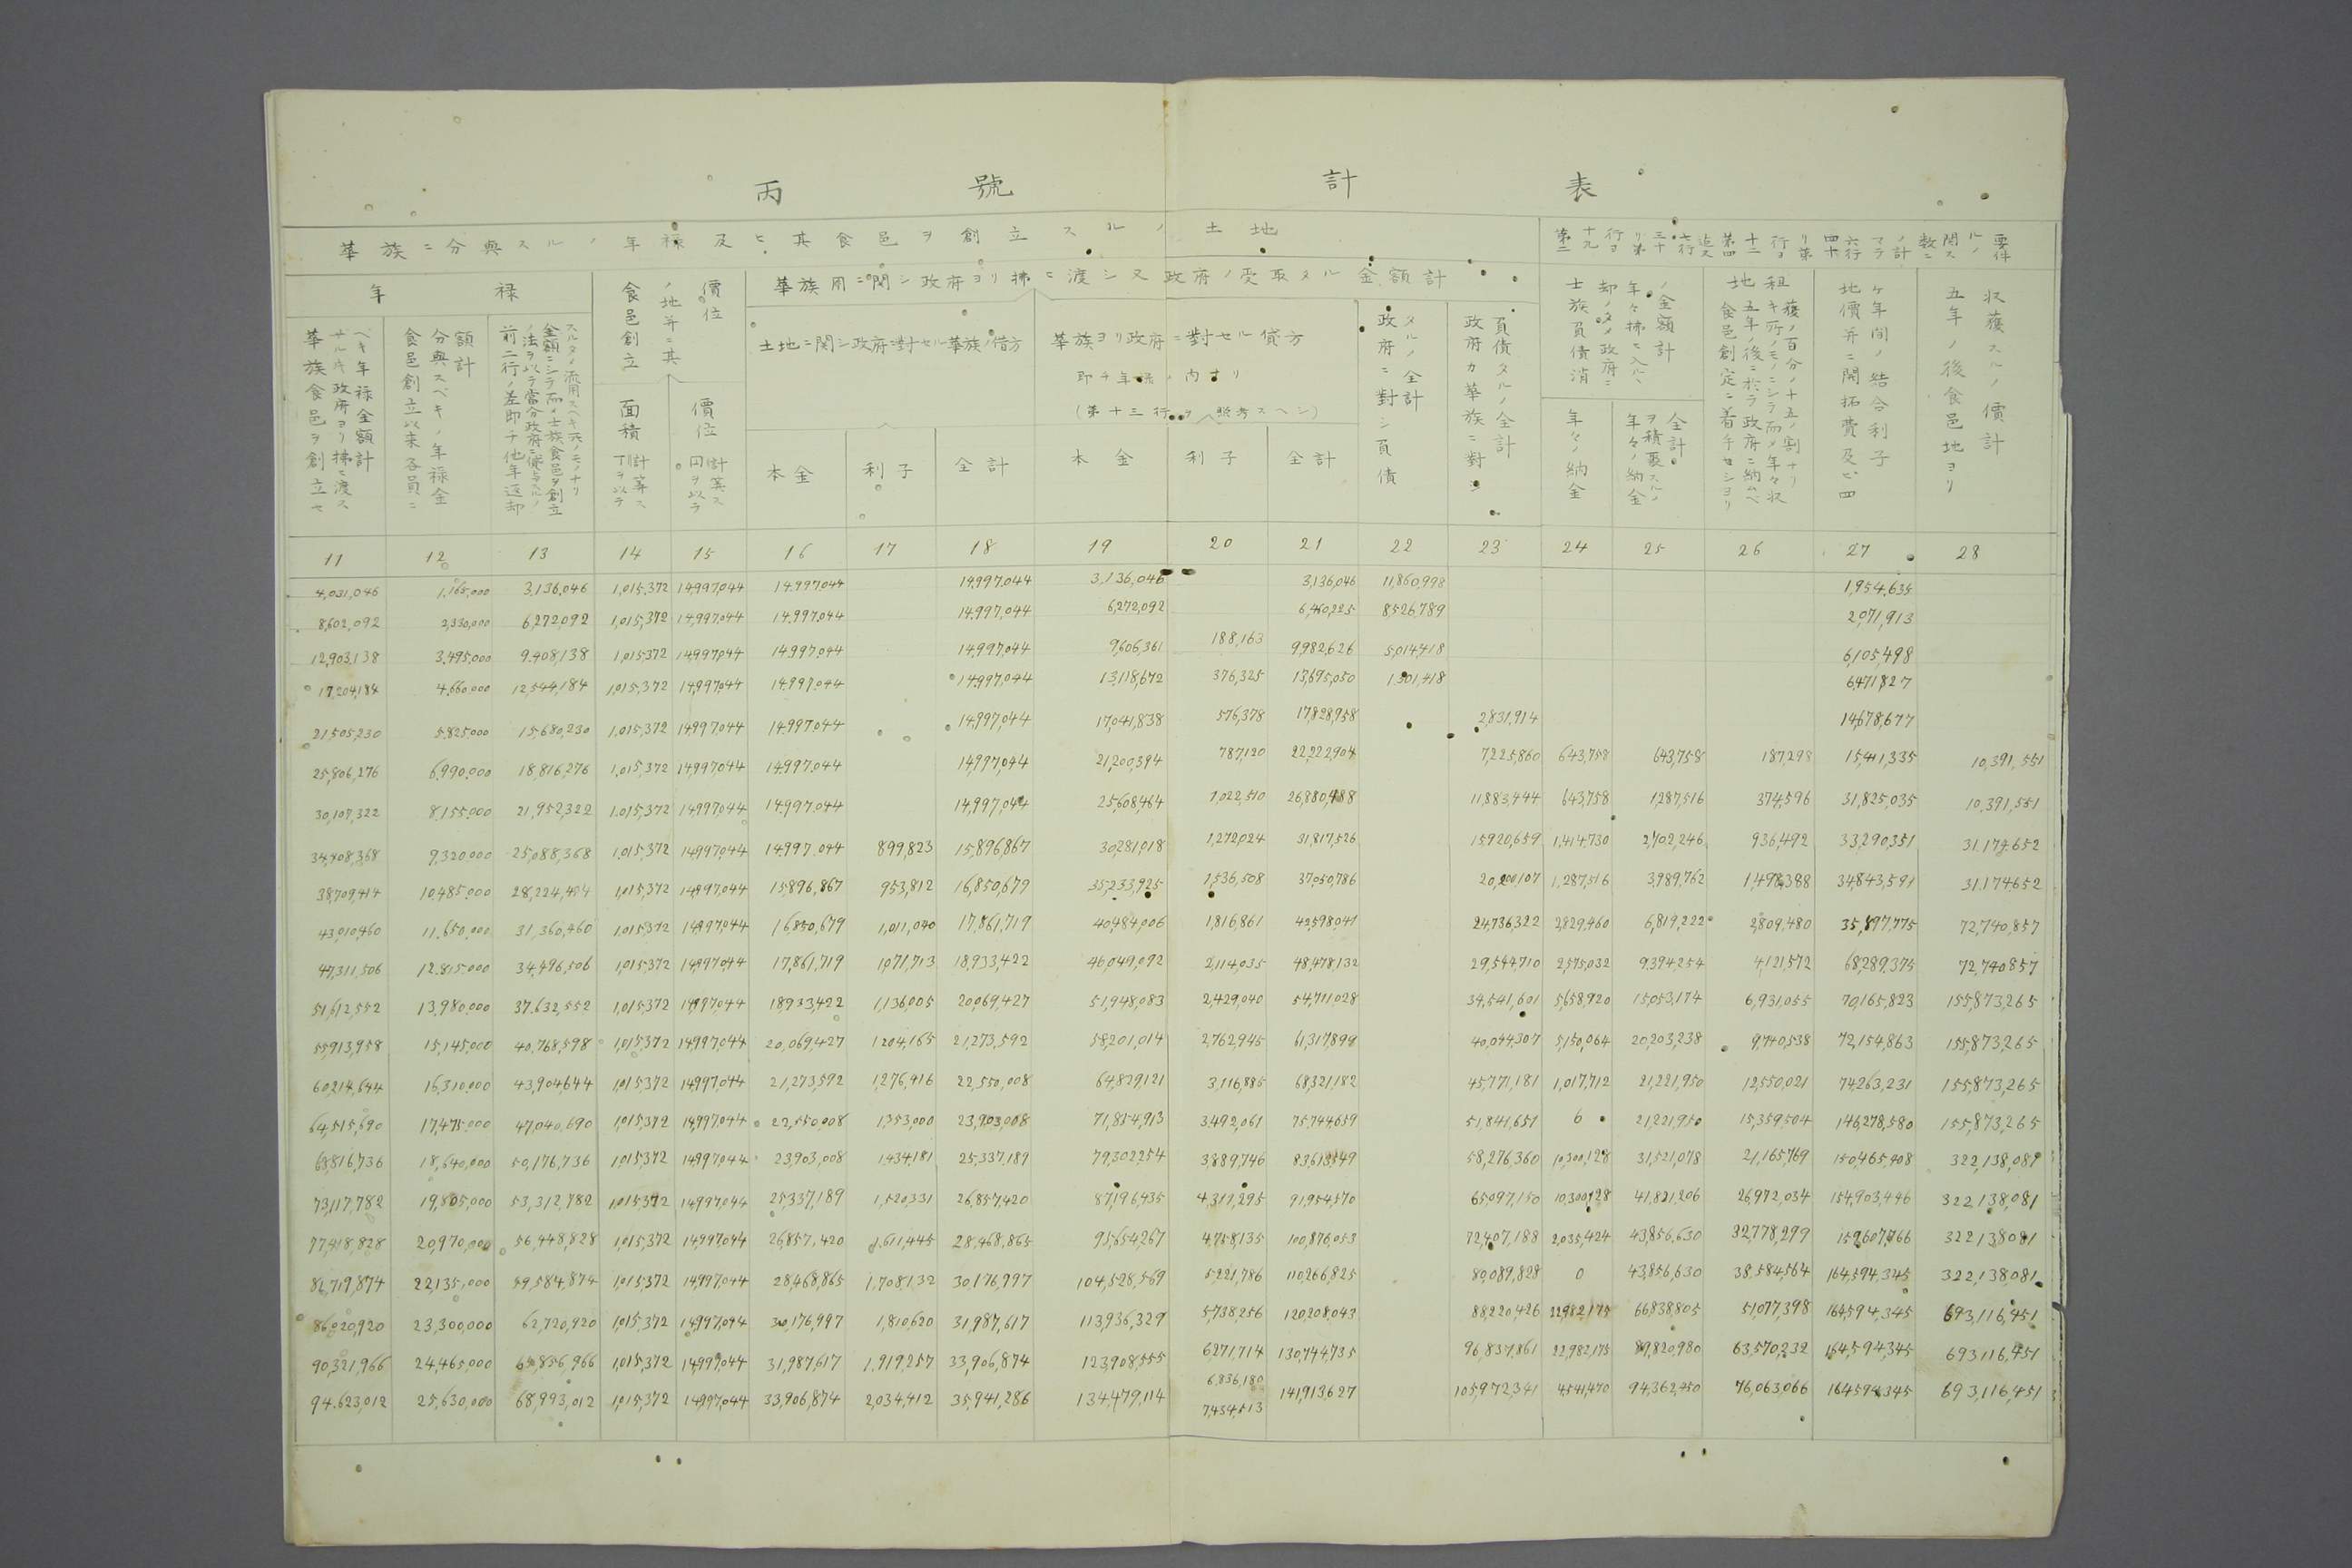 丙號計表
華族ニ分與スルノ年禄及ヒ其食邑ヲ創立スルノ土地
年禄
華族食邑ヲ創立セザルキ政府ヨリ拂ニ渡スベキ年禄全額計
食邑創立以来各員ニ分與スベキノ年禄全額計
前二行ノ差即チ他年返却ノ法ヲ以テ當分政府ニ
食邑創立ノ地并ニ其價位
面積 計算ス 丁ヲ以テ
價位 計算ス 円ヲ以テ
華族用ニ関シ政府ヨリ拂ニ渡シ又政府ノ受取タル金額計
土地ニ関シ政府ニ對セル華族ノ借方
本金 利子 全計
華族ヨリ政府ニ對セル貸方
即チ年禄ノ内ヨリ
(第十三行ヲ照考スヘシ)
本金 利子 全計
政府ニ對シ負債タルノ全計
政府カ華族ニ對シ負債タルノ全計
士族負債消却ノタメ政府ニ年々拂ヒ入ルヽノ全額計
年々ノ納金
年々ノ納金ヲ積裏スルノ全計
地租
食邑創定ニ着手セシヨリ五年ノ後ニ於テ政府ニ納ムベキ所ノモノニシテ而メ年々収獲ノ百分ノ十五ノ割ナリ
地價并ニ開拓費及ヒ四ケ年間ノ結合利子
五年ノ後食邑地ヨリ収獲スルノ價計
11 12 13 14 15 16 17 18 19 20 21 22 23 24 25 26 27 28
4,031,046 1,165,000 3,136,046 1,015,372 14,997,044 14,997,044 14,997,044 3,136,046 3,136,046 11,860,998 1,954,635
8,602,092 2,330,000 6,272,092 1,015,372 14,997,044 14,997,044 14,997,044 6,272,092 6,460,225 8,526,789 2,071,913
12,903,138 3,495,000 9,408,138 1,015,372 14,997,044 14,997,044 14,997,044 9,606,361 188,163 9,982,626 5,014,418 6,105,498
17,204,184 4,660,000 12,544,184 1,015,372 14,997,044 14,997,044 14,997,044 13,118,672 376,325 13,695,050 1,301,418 6,471,827
21,505,230 5,825,000 15,680,230 1,015,372 14,997,044 14,997,044 14,997,044 17,041,838 576,378 17,828,958 2,831,914 14,678,677
25,806,276 6,990,000 18,816,276 1,015,372 14,997,044 14,997,044 14,997,044 21,200,394 787,120 22,222,904 7,225,860 643,758 643,758 187,298 15,441,335 10,391,551
30,107,322 8,155,000 21,952,322 1,015,372 14,997,044 14,997,044 14,997,044 25,608,464 1,022,510 26,880,488 11,883,444 643,758 1,287,516 374,596 31,825,035 10,391,551
34,408,368 9,320,000 25,088,368 1,015,372 14,997,044 14,997,044 899,823 15,896,867 30,281,018 1,272,024 31,817,526 15,920,659 1,414,730 2,702,246 936,492 33,290,351 31,174,652
38,709,414 10,485,000 28,224,404 1,015,372 14,997,044 15,896,867 953,812 16,850,679 35,233,925 1,536,508 37,050,786 20,200,107 1,287,516 3,989,762 1,498,388 34,843,591 31,174,652
43,010,460 11,650,000 31,360,460 1,015,372 14,997,044 16,850,679 1,011,040 17,861,719 40,484,006 1,816,861 42,598,041 24,736,322 2,829,460 6,819,222 2,809,480 35,897,775 72,740,857
47,311,506 12,815,000 34,496,506 1,015,372 14,997,044 17,861,719 1,071,713 18,933,422 46,049,092 2,114,035 48,478,132 29,544,710 2,575,032 9,394,254 4,121,572 68,289,375 72,740,857
51,612,552 13,980,000 37,632,552 1,015,372 14,997,044 18,933,422 1,136,005 20,069,427 51,948,083 2,429,040 54,711,028 34,641,601 5,658,920 15,053,174 6,931,055 70,165,823 155,873,265
55,913,958 15,145,000 40,768,598 1,015,372 14,997,044 20,069,427 1,204,165 21,273,592 58,201,014 2,762,945 61,317,899 40,044,307 5,150,064 20,203,238 9,740,538 72,154,863 155,873,265
60,214,644 16,310,000 43,904,644 1,015,372 14,997,044 21,273,592 1,276,416 22,550,008 64,829,121 3,116,885 68,321,182 45,771,181 1,017,712 21,221,950 12,550,021 74,263,231 155,873,265
64,515,690 17,475,000 47,040,690 1,015,372 14,997,044 22,550,008 1,353,000 23,903,008 71,854,913 3,492,061 75,744,659 51,841,651 0 21,221,950 15,359,504 146,278,580 155,873,265
68,816,736 18,640,000 50,176,736 1,015,372 14,997,044 23,903,008 1,434,181 25,337,189 79,302,254 3,889,746 83,613,549 58,276,360 10,300,128 31,521,078 21,165,769 150,465,908 322,138,089
73,117,782 19,805,000 53,312,782 1,015,372 14,997,044 25,337,189 1,520,331 26,857,420 87,196,435 4,311,295 91,954,570 65,097,150 10,300,128 41,821,206 26,972,034 154,903,446 322,138,081
77,418,828 20,970,000 56,448,828 1,015,372 14,997,044 26,857,420 1,611,445 28,468,865 95,654,267 4,758,135 100,876,053 72,407,188 2,035,424 43,856,630 32,778,299 159,607,766 322,138,081
81,719,874 22,135,000 59,584,874 1,015,372 14,997,044 28,468,865 1,708,132 30,176,997 104,528,569 5,221,786 110,266,825 80,089,828 0 43,856,630 38,584,564 164,594,345 322,138,081
86,020,920 23,300,000 62,720,920 1,015,372 14,997,044 30,176,997 1,810,620 31,987,617 113,936,329 5,738,256 120,208,043 88,220,426 22,982,175 66,838,805 51,077,398 164,594,345 693,116,451
90,321,966 24,465,000 65,856,966 1,015,372 14,997,044 31,987,617 1,919,257 33,906,874 123,908,555 6,271,714 130,744,735 96,837,861 22,982,175 89,820,980 63,570,232 164,594,345 693,116,451
94,623,012 25,630,000 68,993,012 1,015,372 14,997,044 33,906,874 2,034,412 35,941,286 134,479,114 6,836,180 141,913,627 105,972,341 4,541,470 94,362,450 76,063,066 164,594,345 693,116,451
7,434,513